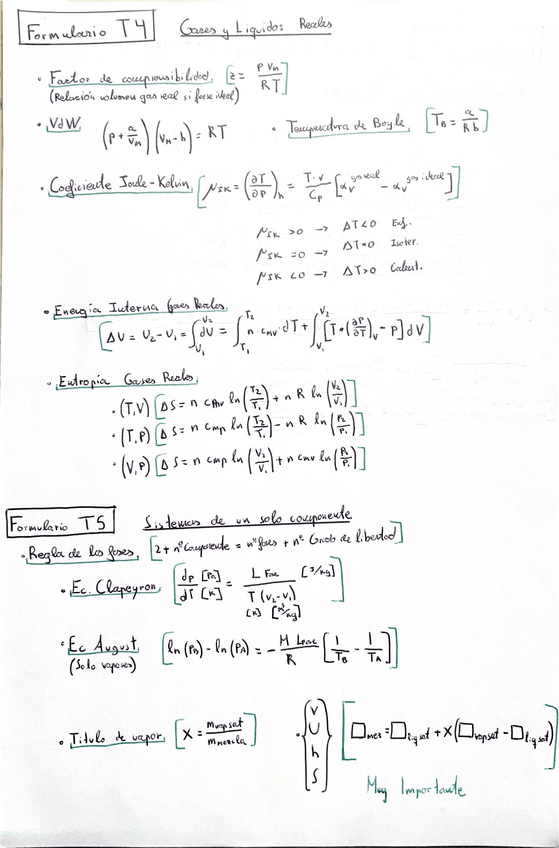 Formulario T4 Gases y Liquidos Reales
• Factor de compresibilidad, [z = P V_M / RT]
(Relación volumen gas real si fuese ideal)
• VdW (p + a/V_M) (V_M - b) = RT • Temperatura de Boyle, [T_B = a/Rb]
• Coeficiente Joule-Kelvin, [μ_JK = (∂T/∂P)_h = T·v/C_P [α_v^gas real - α_v^gas ideal]]
μ_JK > 0 → ΔT < 0 Enf.
μ_JK = 0 → ΔT = 0 Isoter.
μ_JK < 0 → ΔT > 0 Calent.
• Energía Interna Gases Reales,
[ΔU = U_2 - U_1 = ∫_{U_1}^{U_2} dU = ∫_{T_1}^{T_2} n·c_mv·dT + ∫_{V_1}^{V_2} [T·(∂P/∂T)_V - P] dV]
• Entropía Gases Reales,
• (T,V) [ΔS = n c_mv ln(T_2/T_1) + n R ln(V_2/V_1)]
• (T,P) [ΔS = n c_mp ln(T_2/T_1) - n R ln(P_2/P_1)]
• (V,P) [ΔS = n c_mp ln(V_2/V_1) + n c_mv ln(P_2/P_1)]
Formulario T5 Sistemas de un solo componente
• Regla de las fases, [2 + nº Componente = nº fases + nº Grado de libertad]
• Ec. Clapeyron, [dp [Pa] / dT [K] = L Fase [J/kg] / T (v_2 - v_1)]
[K] [m³/kg]
• Ec August, [ln (P_B) - ln (P_A) = - M L_vac / R [1/T_B - 1/T_A]]
(Solo vapores)
• Título de vapor, [X = m_vap sat / m_mezcla] • {V U h S} [□_mez = □_liq sat + X (□_vap sat - □_liq sat)]
Muy Importante